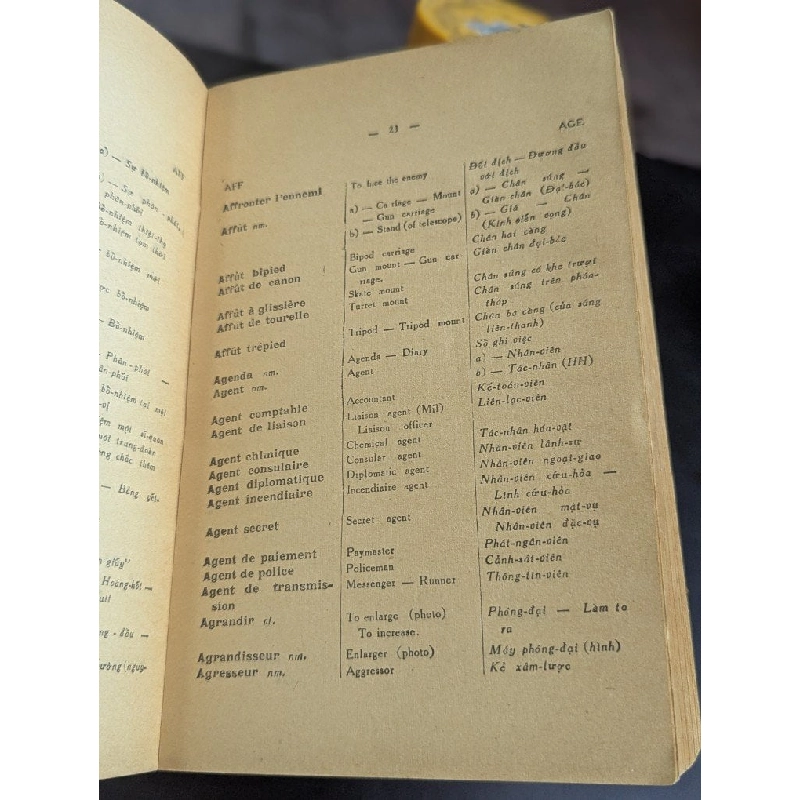 — 23 —
AFF AGE
Affronter l'ennemi To face the enemy Đột địch — Đương đầu
với địch
Affût nm. a) — Carriage — Mount a) — Chân súng —
— Gun carriage Giàn chân (Đại-bác)
b) — Stand (of telescope) b) — Giá — Chân
(Kính viễn vọng)
Affût bipied Bipod carriage Chân hai càng
Affût de canon Gun mount — Gun car Giàn chân đại-bác
riage.
Affût à glissière Skate mount Chân súng có khe trượt
Affût de tourelle Turret mount Chân súng trên pháo-
tháp
Affût trépied Tripod — Tripod mount Chân ba càng (của súng
liên-thanh)
Agenda nm. Agenda — Diary Sổ ghi việc
Agent nm. Agent a) — Nhân-viên
b) — Tác-nhân (HH)
Agent comptable Accountant Kế-toán-viên
Agent de liaison Liaison agent (Mil) Liên-lạc-viên
Liaison officer
Agent chimique Chemical agent Tác-nhân hóa-vật
Agent consulaire Consular agent Nhân-viên lãnh-sự
Agent diplomatique Diplomatic agent Nhân-viên ngoại-giao
Agent incendiaire Incendiaire agent Nhân-viên cứu-hỏa —
Lính cứu-hỏa
Agent secret Secret agent Nhân-viên mật-vụ
Nhân-viên đặc-vụ
Agent de paiement Paymaster Phát-ngân-viên
Agent de police Policeman Cảnh-sát-viên
Agent de transmis- Messenger — Runner Thông-tin-viên
sion
Agrandir vt. To enlarge (photo) Phóng-đại — Làm to
To increase. ra
Agrandisseur nm. Enlarger (photo) Máy phóng-đại (hình)
Agresseur nm. Aggressor Kẻ xâm-lược